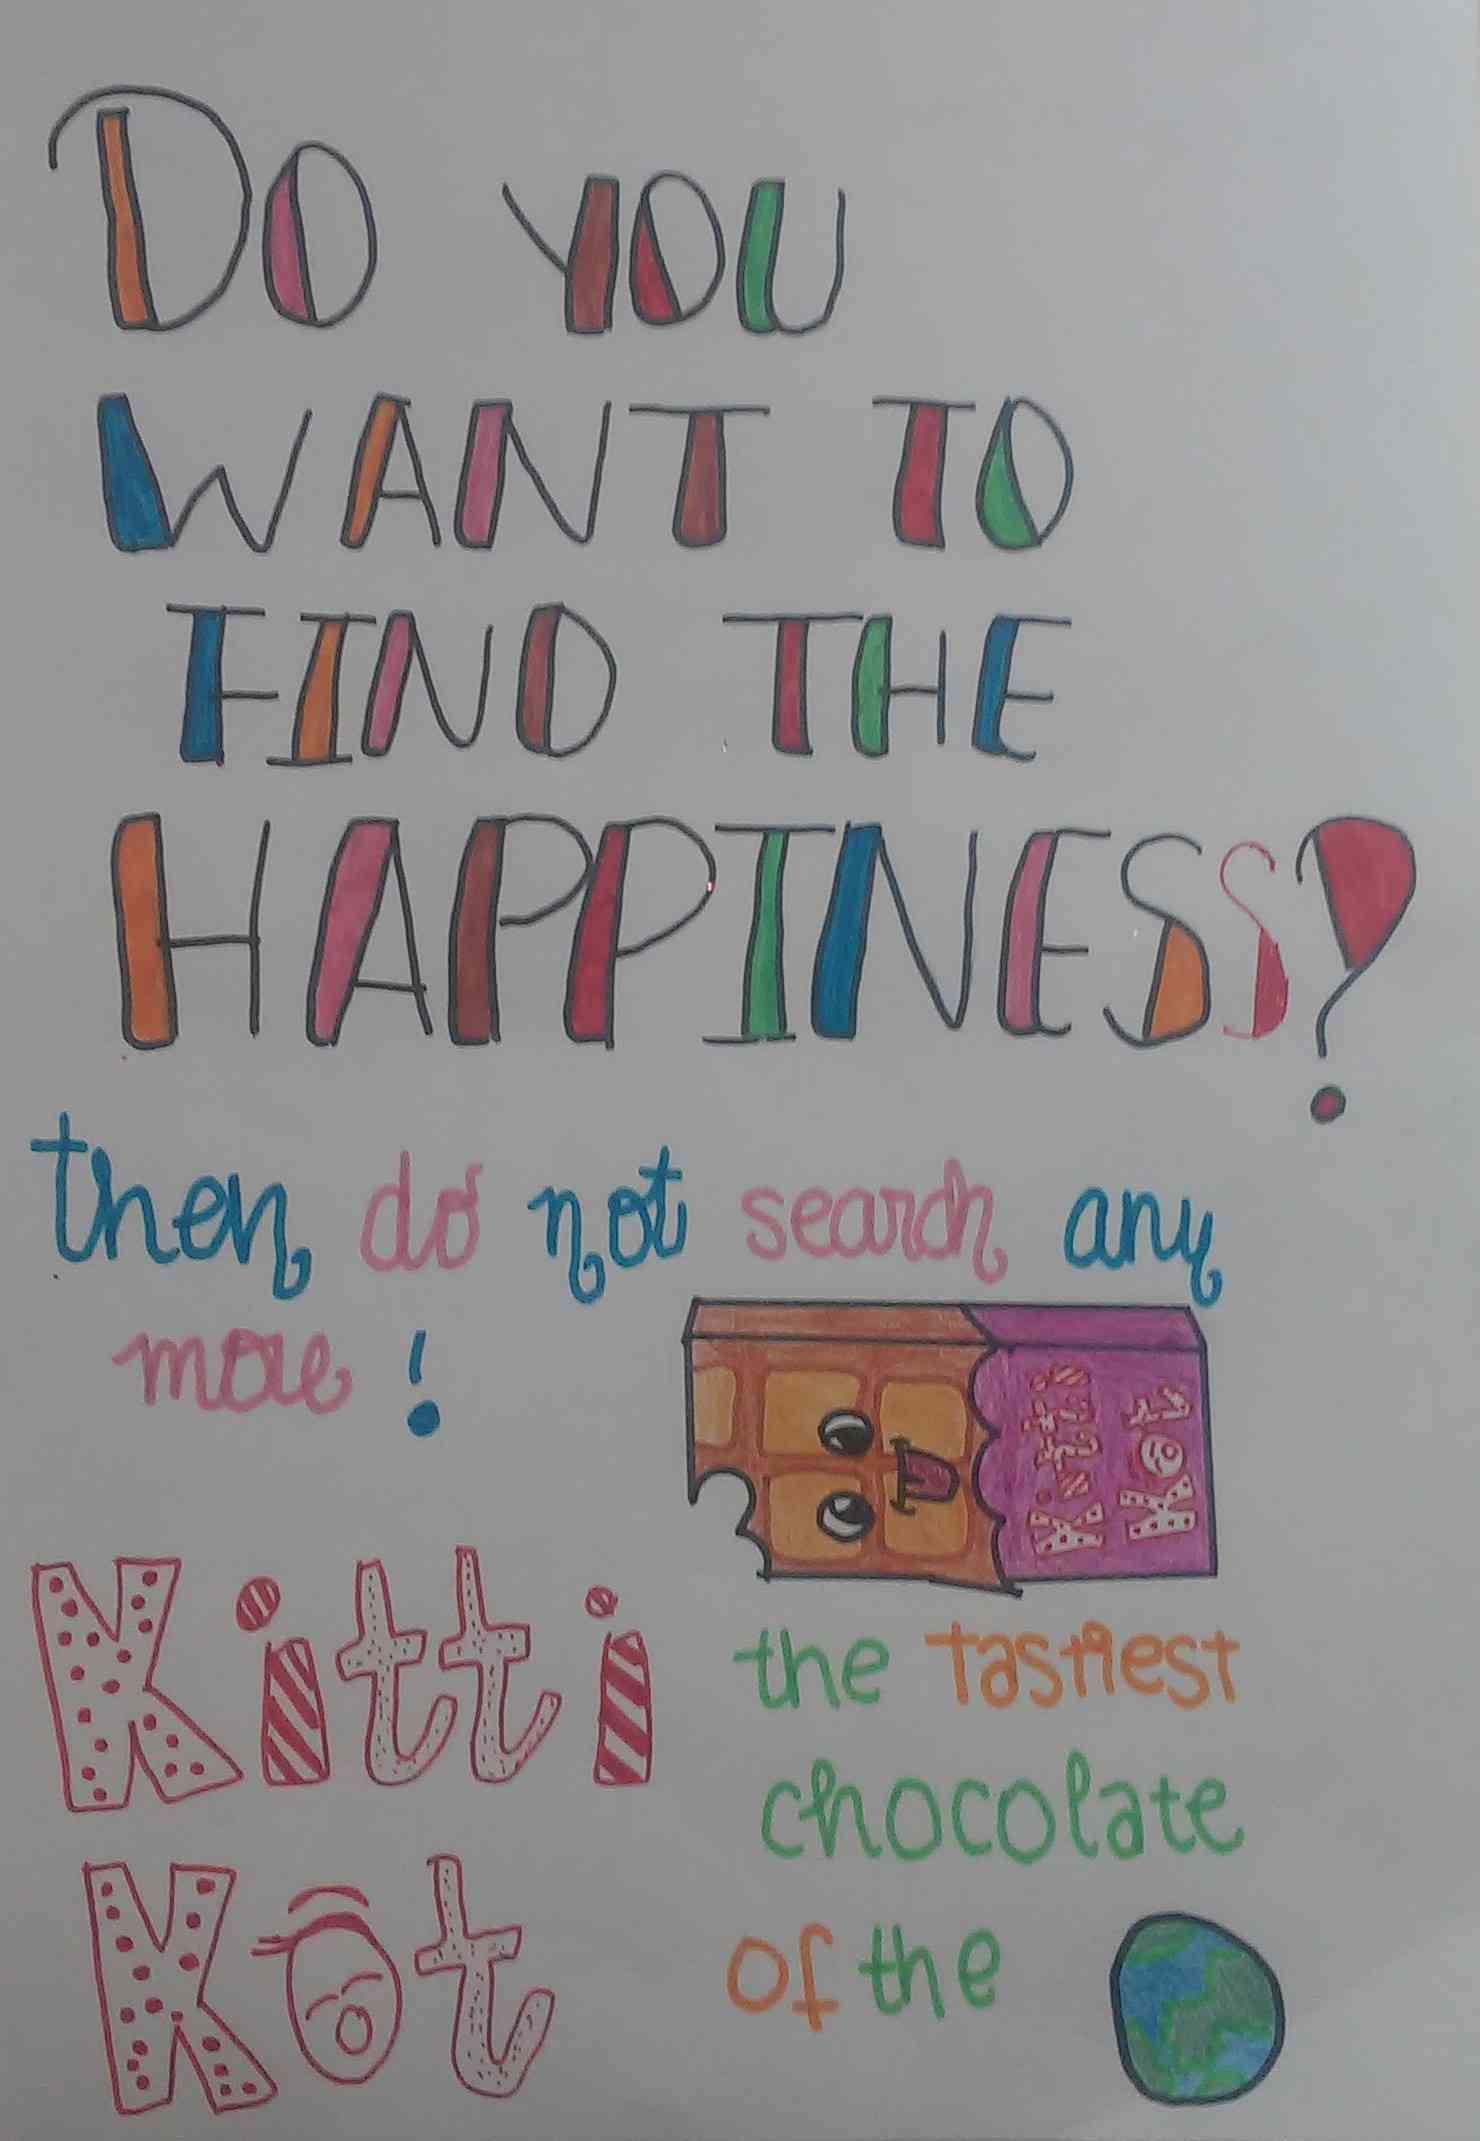 DO YOU
WANT TO
FIND THE
HAPPINESS?
then do not search any
more!
Kitti
Kot
Kitti
Kot
the tastiest
chocolate
of the